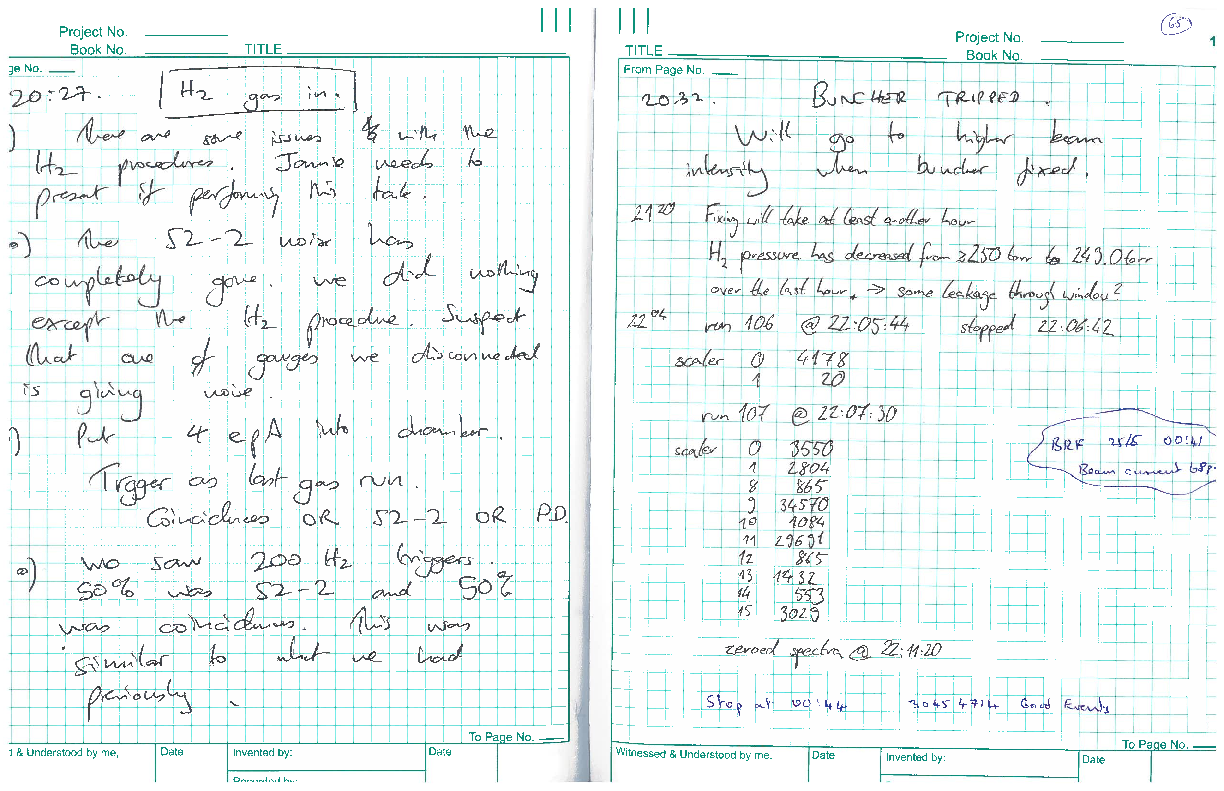 Project No.
Book No.
TITLE
ge No.
20:27.
H2 gas in.
) There are some issues with the
H2 procedures. Jannie needs to
present if performing this task.
o) The S2-2 noise has
completely gone. we did nothing
except the H2 procedure. Suspect
that one of gauges we disconnected
is giving noise.
) Put 4 epA into chamber.
Trgger as last gas run.
Coincidences OR S2-2 OR P.D.
o) We saw 200 Hz triggers.
50% was S2-2 and 50%
was coincidences. This was
similar to what we had
previously.
To Page No.
d & Understood by me,
Date
Invented by:
Date
Recorded by:
65
Project No.
1
TITLE
Book No.
From Page No.
20.32. BUNCHER TRIPPED.
Will go to higher beam
intensity when buncher fixed.
21 20 Fixing will take at least another hour
H2 pressure has decreased from ≥250 torr to 243.0 torr
over the last hour, → some leakage through window?
22 04 run 106 @ 22:05:44 stopped 22:06:42
scaler 0 4178
1 20
run 107 @ 22:07:30
scaler 0 3550
1 2804
8 865
9 34570
10 1084
11 29691
12 865
13 1432
14 553
15 3029
BRF 25/5 00:41
Beam current 68p
zeroed spectra @ 22:11:20
Stop at 00:44 30454714 Good Events
To Page No.
Witnessed & Understood by me,
Date
Invented by:
Date